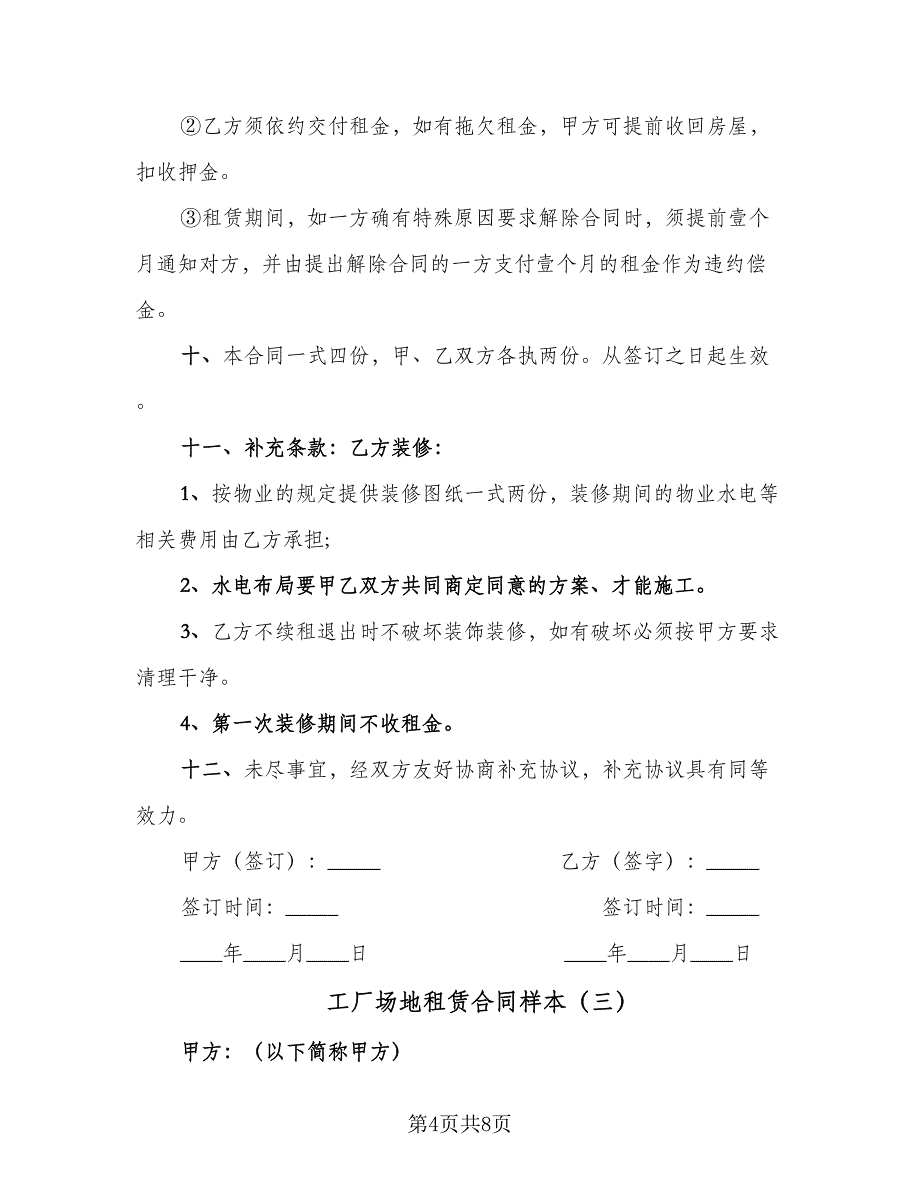 ②乙方须依约交付租金，如有拖欠租金，甲方可提前收回房屋，
扣收押金。
③租赁期间，如一方确有特殊原因要求解除合同时，须提前壹个
月通知对方，并由提出解除合同的一方支付壹个月的租金作为违约偿
金。
十、本合同一式四份，甲、乙双方各执两份。从签订之日起生效
。
十一、补充条款：乙方装修：
1、按物业的规定提供装修图纸一式两份，装修期间的物业水电等
相关费用由乙方承担;
2、水电布局要甲乙双方共同商定同意的方案、才能施工。
3、乙方不续租退出时不破坏装饰装修，如有破坏必须按甲方要求
清理干净。
4、第一次装修期间不收租金。
十二、未尽事宜，经双方友好协商补充协议，补充协议具有同等
效力。
甲方（签订）：_____ 乙方（签字）：_____
签订时间：_____ 签订时间：_____
____年____月____日 ____年____月____日
工厂场地租赁合同样本（三）
甲方：（以下简称甲方）
第4页共8页